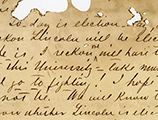 So day is election
Lincoln will be Elec
is. I reckon will have t
this University- take mus
go to fightin'. I hope
not be. We will know
now whither Lincoln is elec